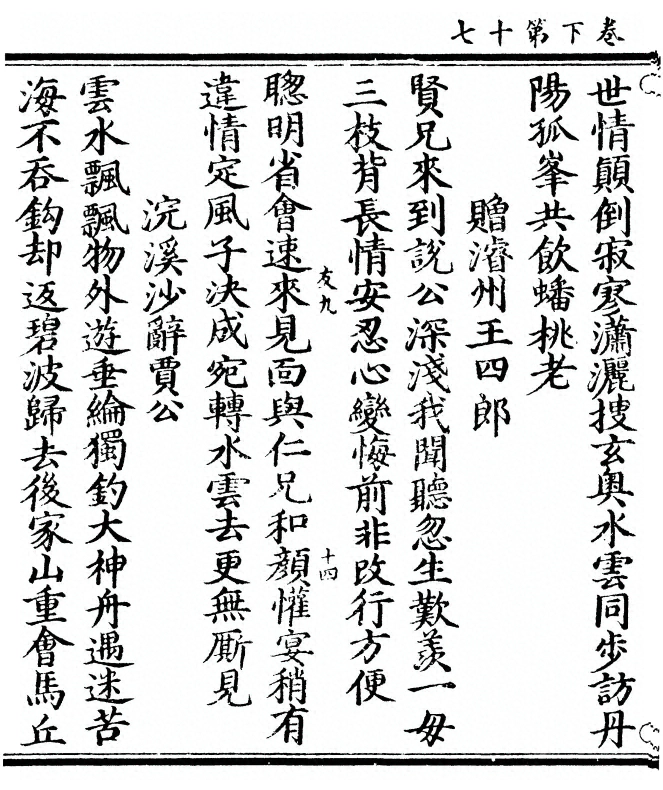 卷下第十七
世情顛倒寂寥瀟灑搜玄奧水雲同步訪丹
陽孤峯共飲蟠桃老
贈濬州王四郎
賢兄來到說公深淺我聞聽忽生歎羨一毋
三枝背長情安忍心變悔前非改行方便
友九
聰明省會速來見面與仁兄和顏懽宴稍有
十四
違情定風子決成宛轉水雲去更無厮見
浣溪沙辭賈公
雲水飄飄物外遊垂綸獨釣大神舟遇迷苦
海不吞鈎却返碧波歸去後家山重會馬丘